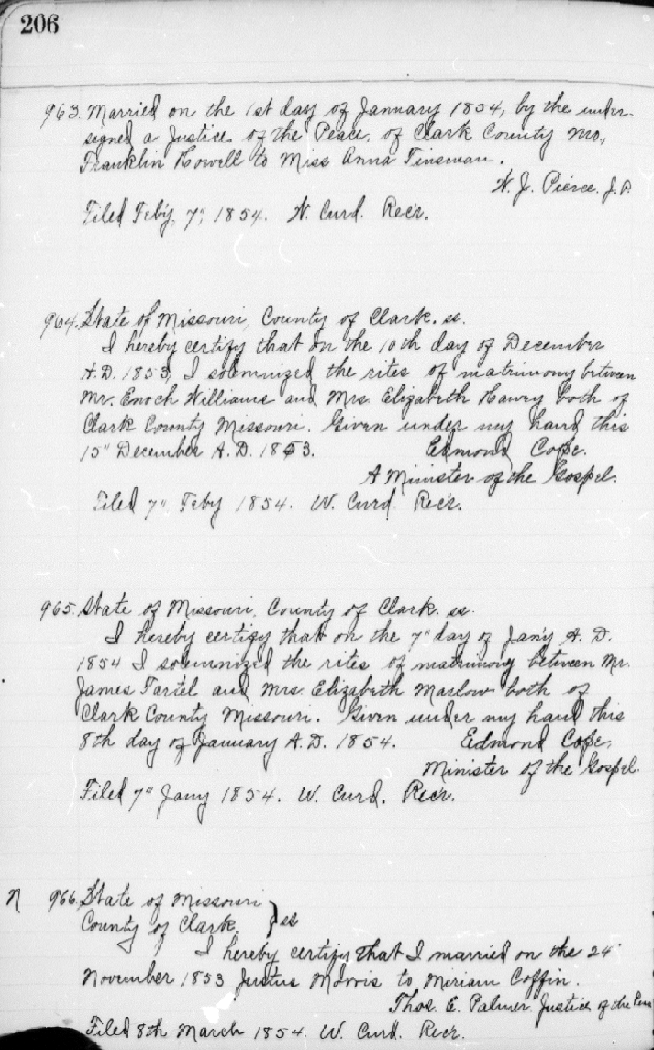 206
963. Married on the 1st day of January 1854, by the under-
signed a Justice of the Peace of Clark County Mo.,
Franklin Howell to Miss Anna Tinsman.
W. J. Pierce. J.P.
Filed Feb'y, 7", 1854. W. Curd. Rec'r.
964. State of Missouri, County of Clark. ss.
I hereby certify that on the 10th day of December
A.D. 1853, I solemnized the rites of matrimony between
Mr. Enoch Williams and Mrs. Elizabeth both of
Clark County Missouri. Given under my hand this
15" December A.D. 1853. Edmond Cope.
A Minister of the Gospel.
Filed 7", Feby 1854. W. Curd Rec'r.
965. State of Missouri, County of Clark. ss.
I hereby certify that on the 7" day of Jan'y A.D.
1854 I solemnized the rites of matrimony between Mr.
James and Mrs. Elizabeth Marlow both of
Clark County Missouri. Given under my hand this
8th day of January A.D. 1854. Edmond Cope,
Minister of the Gospel
Filed 7" Jany 1854. W. Curd. Rec'r.
N 966. State of Missouri
County of Clark. } ss
I hereby certify that I married on the 24"
November 1853 Justus Morris to Miriam Coffin.
Thos. E. Palmer. Justice of the Pea
Filed 8th March 1854. W. Curd. Rec'r.